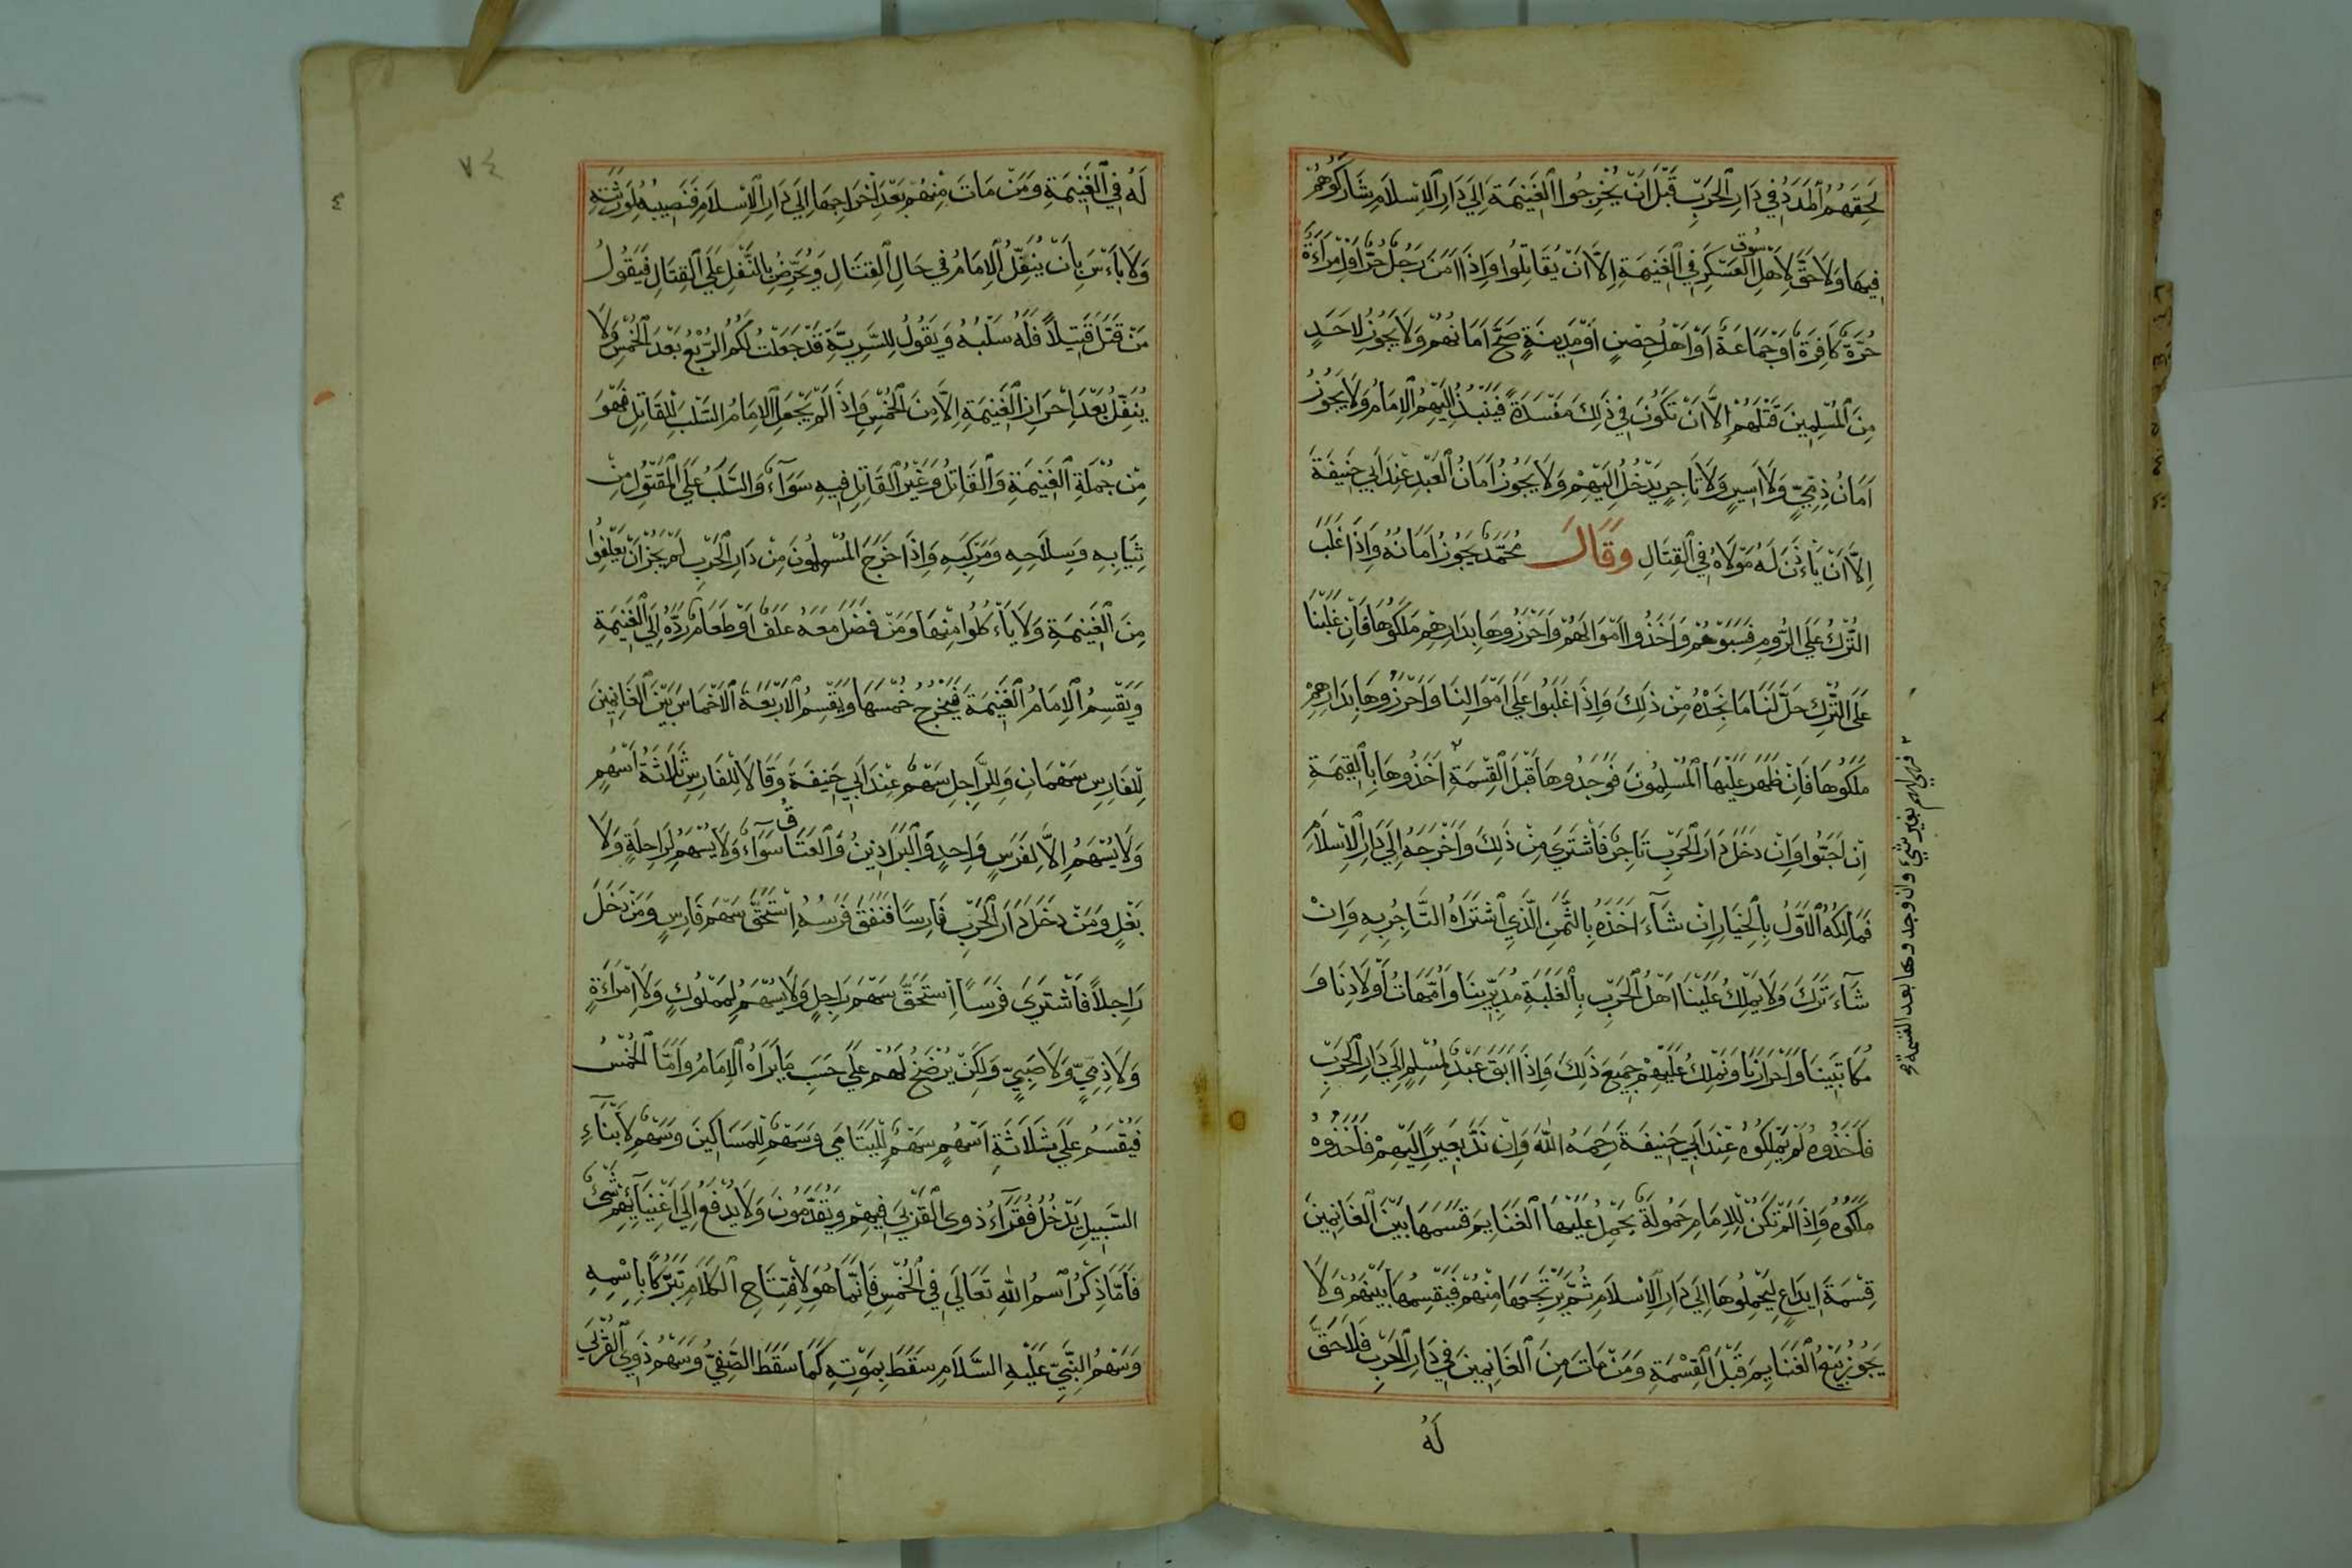 لَحِقَهُمُ الْمَدَدُ فِي دَارِ الْحَرْبِ قَبْلَ اَنْ يُخْرِجُوا الْغَنِيمَةَ اِلَى دَارِ الْاِسْلَامِ شَارَكُوهُمْ
فِيهَا وَلَا حَقَّ لِاَهْلِ سُوقِ الْعَسْكَرِ فِي الْغَنِيمَةِ اِلَّا اَنْ يُقَاتِلُوا وَاِذَا اَمَنَ رَجُلٌ حُرٌّ اَوِ امْرَاَةٌ
حُرَّةٌ كَافِرَةً اَوْ جَمَاعَةً اَوْ اَهْلَ حِصْنٍ اَوْ مَدِينَةٍ صَحَّ اَمَانُهُمْ وَلَا يَجُوزُ لِاَحَدٍ
مِنَ الْمُسْلِمِينَ قَتْلُهُمْ اِلَّا اَنْ تَكُونَ فِي ذَلِكَ مَفْسَدَةٌ فَيَنْبِذُ اِلَيْهِمُ الْاِمَامُ وَلَا يَجُوزُ
اَمَانُ ذِمِّيٍّ وَلَا اَسِيرٍ وَلَا تَاجِرٍ يَدْخُلُ اِلَيْهِمْ وَلَا يَجُوزُ اَمَانُ الْعَبْدِ عِنْدَ اَبِي حَنِيفَةَ
اِلَّا اَنْ يَأْذَنَ لَهُ مَوْلَاهُ فِي الْقِتَالِ وَقَالَ مُحَمَّدٌ يَجُوزُ اَمَانُهُ وَاِذَا غَلَبَ
التُّرْكُ عَلَى الرُّومِ فَسَبَوْهُمْ وَاَخَذُوا اَمْوَالَهُمْ وَاَحْرَزُوهَا بِدَارِهِمْ مَلَكُوهَا فَاِنْ غَلَبْنَا
عَلَى التُّرْكِ حَلَّ لَنَا مَا نَجِدُهُ مِنْ ذَلِكَ وَاِذَا غَلَبُوا عَلَى اَمْوَالِنَا وَاَحْرَزُوهَا بِدَارِهِمْ
مَلَكُوهَا فَاِنْ ظَهَرَ عَلَيْهَا الْمُسْلِمُونَ فَوَجَدُوهَا قَبْلَ الْقِسْمَةِ ٢ اَخَذُوهَا بِالْقِيمَةِ
اِنْ اَحَبُّوا وَاِنْ دَخَلَ دَارَ الْحَرْبِ تَاجِرٌ فَاشْتَرَى مِنْ ذَلِكَ وَاَخْرَجَهُ اِلَى دَارِ الْاِسْلَامِ
فَمَالِكُهُ الْاَوَّلُ بِالْخِيَارِ اِنْ شَآءَ اَخَذَهُ بِالثَّمَنِ الَّذِي اشْتَرَاهُ التَّاجِرُ بِهِ وَاِنْ
شَآءَ تَرَكَ وَلَا يَمْلِكُ عَلَيْنَا اَهْلُ الْحَرْبِ بِالْغَلَبَةِ مُدَبَّرِينَا وَاُمَّهَاتُ اَوْلَادِنَا وَ
مُكَاتَبِينَا وَاَحْرَارَنَا وَنَمْلِكُ عَلَيْهِمْ جَمِيعَ ذَلِكَ وَاِذَا اَبَقَ عَبْدٌ لِمُسْلِمٍ اِلَى دَارِ الْحَرْبِ
فَاَخَذُوهُ لَمْ يَمْلِكُوهُ عِنْدَ اَبِي حَنِيفَةَ رَحِمَهُ اللهُ وَاِنْ نَدَّ بَعِيرٌ اِلَيْهِمْ فَاَخَذُوهُ
مَلَكُوهُ وَاِذَا لَمْ تَكُنْ لِلْاِمَامِ حَمُولَةٌ يَحْمِلُ عَلَيْهَا الْغَنَايِمَ قَسَمَهَا بَيْنَ الْغَانِمِينَ
قِسْمَةَ اِيدَاعٍ لِيَحْمِلُوهَا اِلَى دَارِ الْاِسْلَامِ ثُمَّ يَرْتَجِعُهَا مِنْهُمْ فَيَقْسِمُهَا بَيْنَهُمْ وَلَا
يَجُوزُ بَيْعُ الْغَنَايِمِ قَبْلَ الْقِسْمَةِ وَمَنْ مَاتَ مِنَ الْغَانِمِينَ فِي دَارِ الْحَرْبِ فَلَا حَقَّ
لَهُ
٢ فهي لهم بغير شيئ وان وجدوها بعد القسمة
٧٤
لَهُ فِي الْغَنِيمَةِ وَمَنْ مَاتَ مِنْهُمْ بَعْدَ اِخْرَاجِهَا اِلَى دَارِ الْاِسْلَامِ فَنَصِيبُهُ لِوَرَثَتِهِ
وَلَا بَأْسَ بِاَنْ يُنَفِّلَ الْاِمَامُ فِي حَالِ الْقِتَالِ وَيُحَرِّضُ بِالنَّفْلِ عَلَى الْقِتَالِ فَيَقُولُ
مَنْ قَتَلَ قَتِيلًا فَلَهُ سَلَبُهُ وَيَقُولُ لِلسَّرِيَّةِ قَدْ جَعَلْتُ لَكُمُ الرُّبْعَ بَعْدَ الْخُمْسِ وَلَا
يُنَفِّلُ بَعْدَ اِحْرَازِ الْغَنِيمَةِ اِلَّا مِنَ الْخُمْسِ وَاِذَا لَمْ يَجْعَلِ الْاِمَامُ السَّلَبَ لِلْقَاتِلِ فَهُوَ
مِنْ جُمْلَةِ الْغَنِيمَةِ وَالْقَاتِلُ وَغَيْرُ الْقَاتِلِ فِيهِ سَوَآءٌ وَالسَّلَبُ عَلَى الْمَقْتُولِ مِنْ
ثِيَابِهِ وَسِلَاحِهِ وَمَرْكَبِهِ وَاِذَا خَرَجَ الْمُسْلِمُونَ مِنْ دَارِ الْحَرْبِ لَمْ يَجُزْ اَنْ يَعْلِفُوا
مِنَ الْغَنِيمَةِ وَلَا يَأْكُلُوا مِنْهَا وَمَنْ فَضَلَ مَعَهُ عَلَفٌ اَوْ طَعَامٌ رَدَّهُ اِلَى الْغَنِيمَةِ
وَيَقْسِمُ الْاِمَامُ الْغَنِيمَةَ فَيُخْرِجُ خُمْسَهَا وَيَقْسِمُ الْاَرْبَعَةَ الْاَخْمَاسَ بَيْنَ الْغَانِمِينَ
لِلْفَارِسِ سَهْمَانِ وَلِلرَّاجِلِ سَهْمٌ عِنْدَ اَبِي حَنِيفَةَ وَقَالَا لِلْفَارِسِ ثَلَاثَةُ اَسْهُمٍ
وَلَا يُسْهَمُ اِلَّا لِفَرَسٍ وَاحِدٍ وَالْبَرَاذِينُ وَالْعَتَاقُ سَوَآءٌ وَلَا يُسْهَمُ لِرَاحِلَةٍ وَلَا
بَغْلٍ وَمَنْ دَخَلَ دَارَ الْحَرْبِ فَارِسًا فَنَفَقَ فَرَسُهُ اِسْتَحَقَّ سَهْمَ فَارِسٍ وَمَنْ دَخَلَ
رَاجِلًا فَاشْتَرَى فَرَسًا اِسْتَحَقَّ سَهْمَ رَاجِلٍ وَلَا يُسْهَمُ لِمَمْلُوكٍ وَلَا امْرَاَةٍ
وَلَا ذِمِّيٍّ وَلَا صَبِيٍّ وَلَكِنْ يُرْضَخُ لَهُمْ عَلَى حَسَبِ مَا يَرَاهُ الْاِمَامُ وَاَمَّا الْخُمْسُ
فَيُقْسَمُ عَلَى ثَلَاثَةِ اَسْهُمٍ سَهْمٌ لِلْيَتَامَى وَسَهْمٌ لِلْمَسَاكِينَ وَسَهْمٌ لِاَبْنَآءِ
السَّبِيلِ يَدْخُلُ فُقَرَآءُ ذَوِى الْقُرْبَى فِيهِمْ وَيُقَدَّمُونَ وَلَا يُدْفَعُ اِلَى اَغْنِيَآئِهِمْ شَيْئٌ
فَاَمَّا ذِكْرُ اسْمُ اللهِ تَعَالَى فِي الْخُمْسِ فَاِنَّمَا هُوَ لِافْتِتَاحِ الْكَلَامِ تَبَرُّكًا بِاِسْمِهِ
وَسَهْمُ النَّبِيِّ عَلَيْهِ السَّلَامِ سَقَطَ بِمَوْتِهِ كَمَا سَقَطَ الصَّفِيُّ وَسَهْمُ ذَوِى الْقُرْبَى